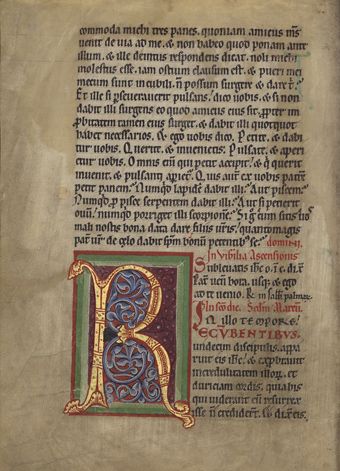 commoda michi tres panes. quoniam amicus m̄s
uenit de uia ad me. & non habeo quod ponam ante
illum. & ille deintus respondens dicat. noli michi
molestus esse. iam ostium clausum est. & pueri mei
mecum sunt in cubili. n̄ possum surgere & dare t̄.
Et ille si pseuerauerit pulsans. dico uobis. & si non
dabit illi surgens eo quod amicus eius sit. ppter im
pbitatem tamen eius surget. & dabit illi quotquot
habet necessarios. & ego uobis dico. Petite. & dabi
tur uobis. Querite. & inuenietis. Pulsate. & aperi
etur uobis. Omnis eni qui petit accipit. & q querit
inuenit. & pulsanti apiet. Quis aut ex uobis patrē
petit panem. Numqd lapidē dabit illi. Aut piscem.
Numqd p pisce serpentem dabit illi. Aut si petierit
ouū. numqd porriget illi scorpionē. Si g cum sitis uos
mali nostis bona data dare filiis uris. quantomagis
pat ur de celo dabit spm bonū petentib se.
In Vigilia Ascensionis
Subleuatis ihc o. i c. dix
hora. usq; & ego
ad te uenio.
In die. Marcū.
IN illo tempore
RECUBENTIBUS
undecim discipulis. appa
ruit eis ihc. & exprbrauit
incredulitatem illor. &
duriciam cordis. quia his
qui uiderant eū resurrex
isse n̄ crediderunt. eis.